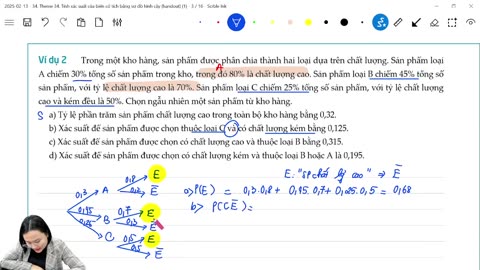 2025. 02. 13 34. Theme 34. Tính xác suất của biến cố tích bằng sơ đồ hình cây (handout) (1) 3 / 16 Scible Ink
Ví dụ 2 Trong một kho hàng, sản phẩm được phân chia thành hai loại dựa trên chất lượng. Sản phẩm loại
A chiếm 30% tổng số sản phẩm trong kho, trong đó 80% là chất lượng cao. Sản phẩm loại B chiếm 45% tổng số
sản phẩm, với tỷ lệ chất lượng cao là 70%. Sản phẩm loại C chiếm 25% tổng số sản phẩm, với tỷ lệ chất lượng
cao và kém đều là 50%. Chọn ngẫu nhiên một sản phẩm từ kho hàng.
A
S a) Tỷ lệ phần trăm sản phẩm chất lượng cao trong toàn bộ kho hàng bằng 0,32.
b) Xác suất để sản phẩm được chọn thuộc loại C và có chất lượng kém bằng 0,125.
c) Xác suất để sản phẩm được chọn có chất lượng cao và thuộc loại B bằng 0,315.
d) Xác suất để sản phẩm được chọn có chất lượng kém và thuộc loại B hoặc A là 0,195.
E: "SP chất lg cao" → E̅
0,3 A 0,8 E
0,2 E̅
0,45 B 0,7 E
0,3 E̅
0,25 C 0,5 E
0,5 E̅
a> P(E) = 0,3.0,8 + 0,45.0,7 + 0,25.0,5 = 0,68
b> P(CE̅) =